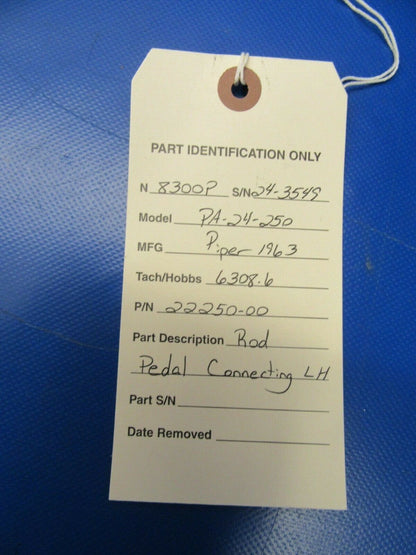 PART IDENTIFICATION ONLY
N 8300P S/N 24-3549
Model PA-24-250
MFG Piper 1963
Tach/Hobbs 6308.6
P/N 22250-00
Part Description Rod
Pedal Connecting LH
Part S/N
Date Removed